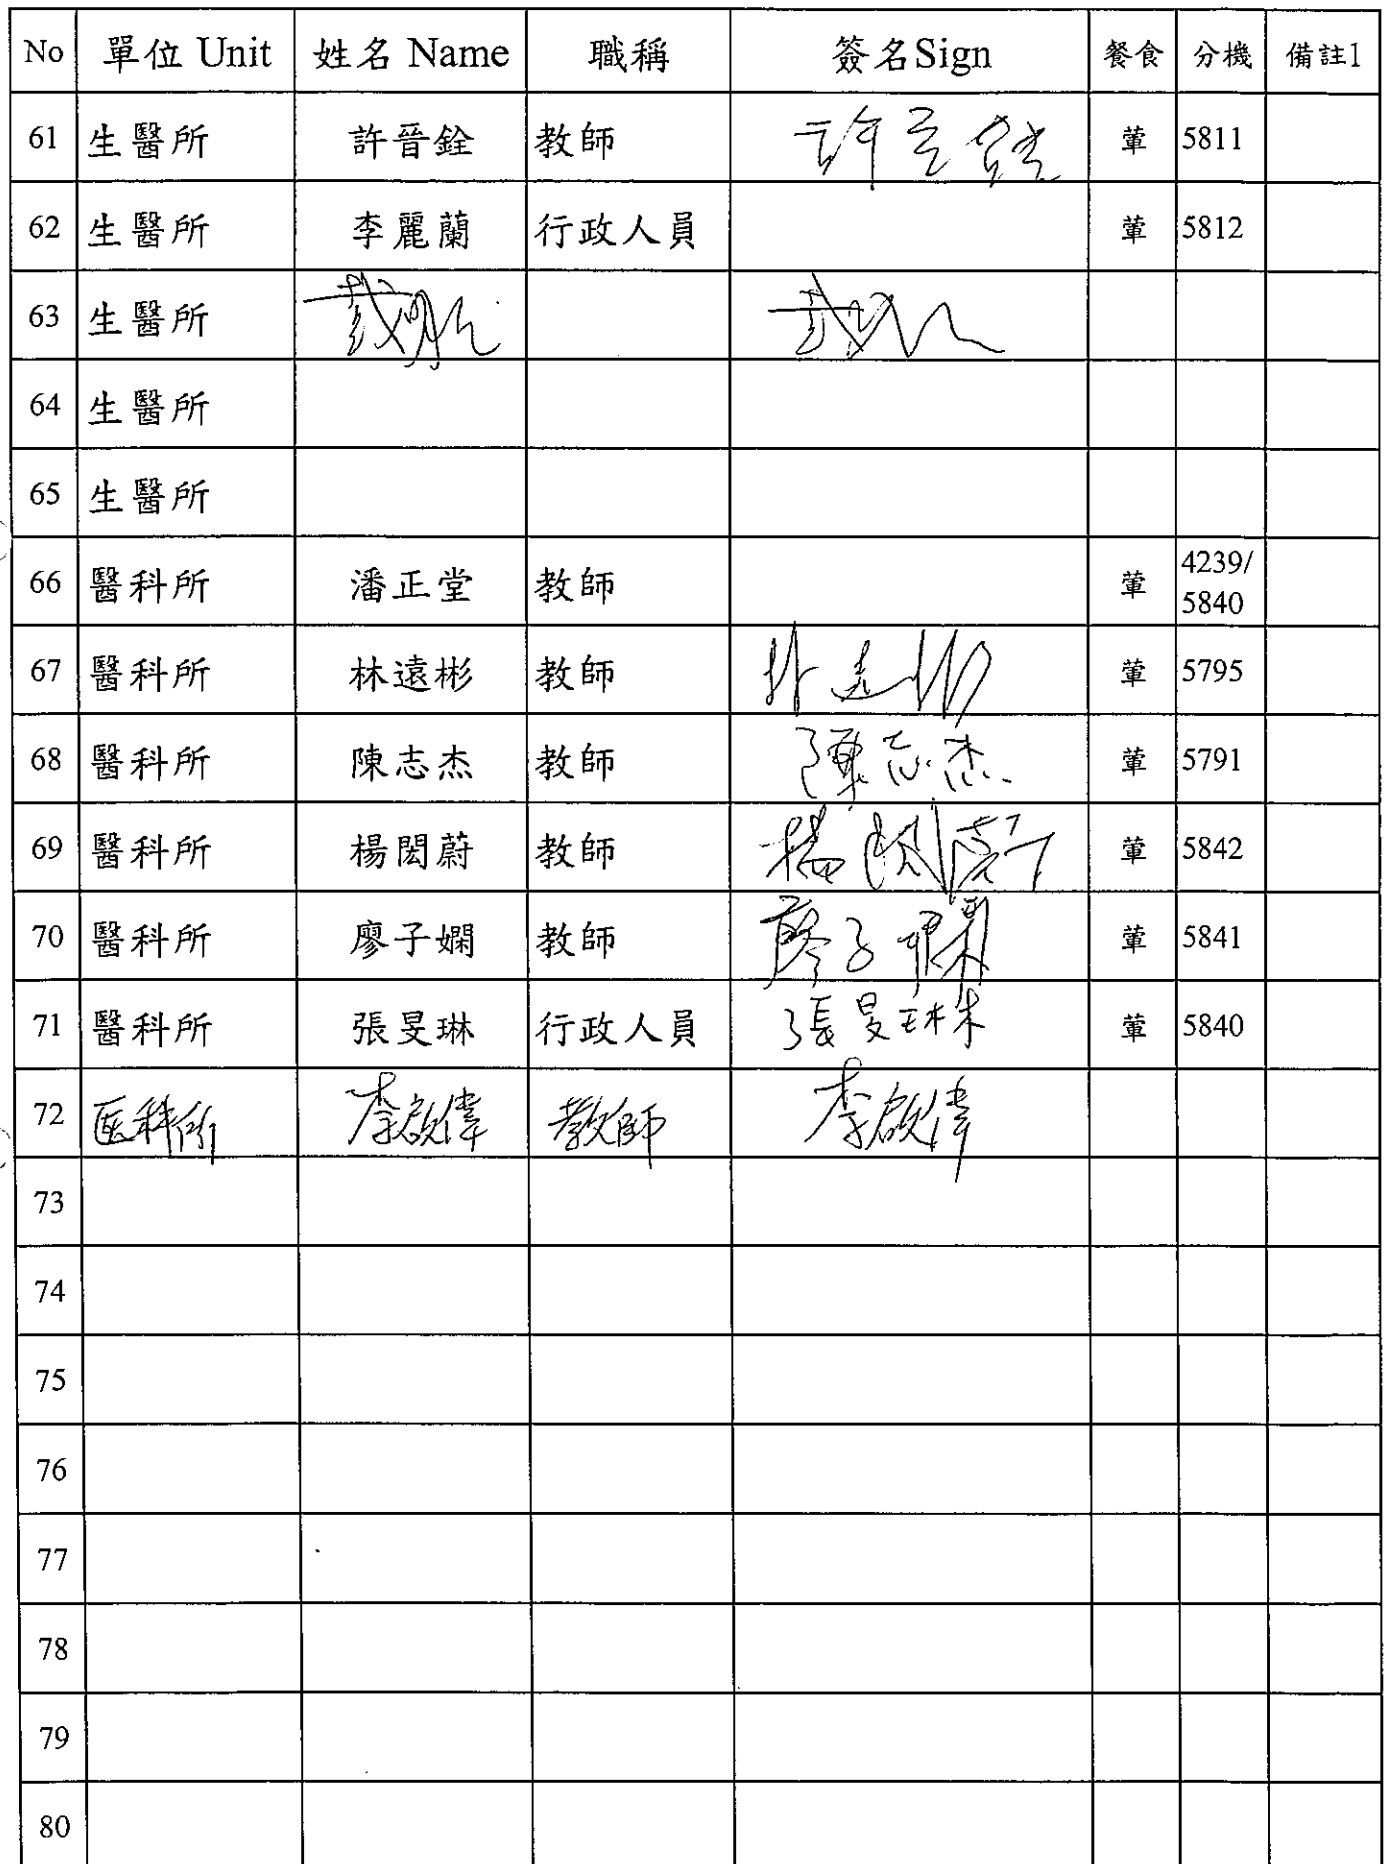 No 單位 Unit 姓名 Name 職稱 簽名Sign 餐食 分機 備註1
61 生醫所 許晉銓 教師 許晉銓 葷 5811
62 生醫所 李麗蘭 行政人員 葷 5812
63 生醫所
64 生醫所
65 生醫所
66 醫科所 潘正堂 教師 葷 4239/
5840
67 醫科所 林遠彬 教師 林遠彬 葷 5795
68 醫科所 陳志杰 教師 陳志杰 葷 5791
69 醫科所 楊閎蔚 教師 楊閎蔚 葷 5842
70 醫科所 廖子嫻 教師 廖子嫻 葷 5841
71 醫科所 張旻琳 行政人員 張旻琳 葷 5840
72 医科所 李啟偉 教師 李啟偉
73
74
75
76
77
78
79
80